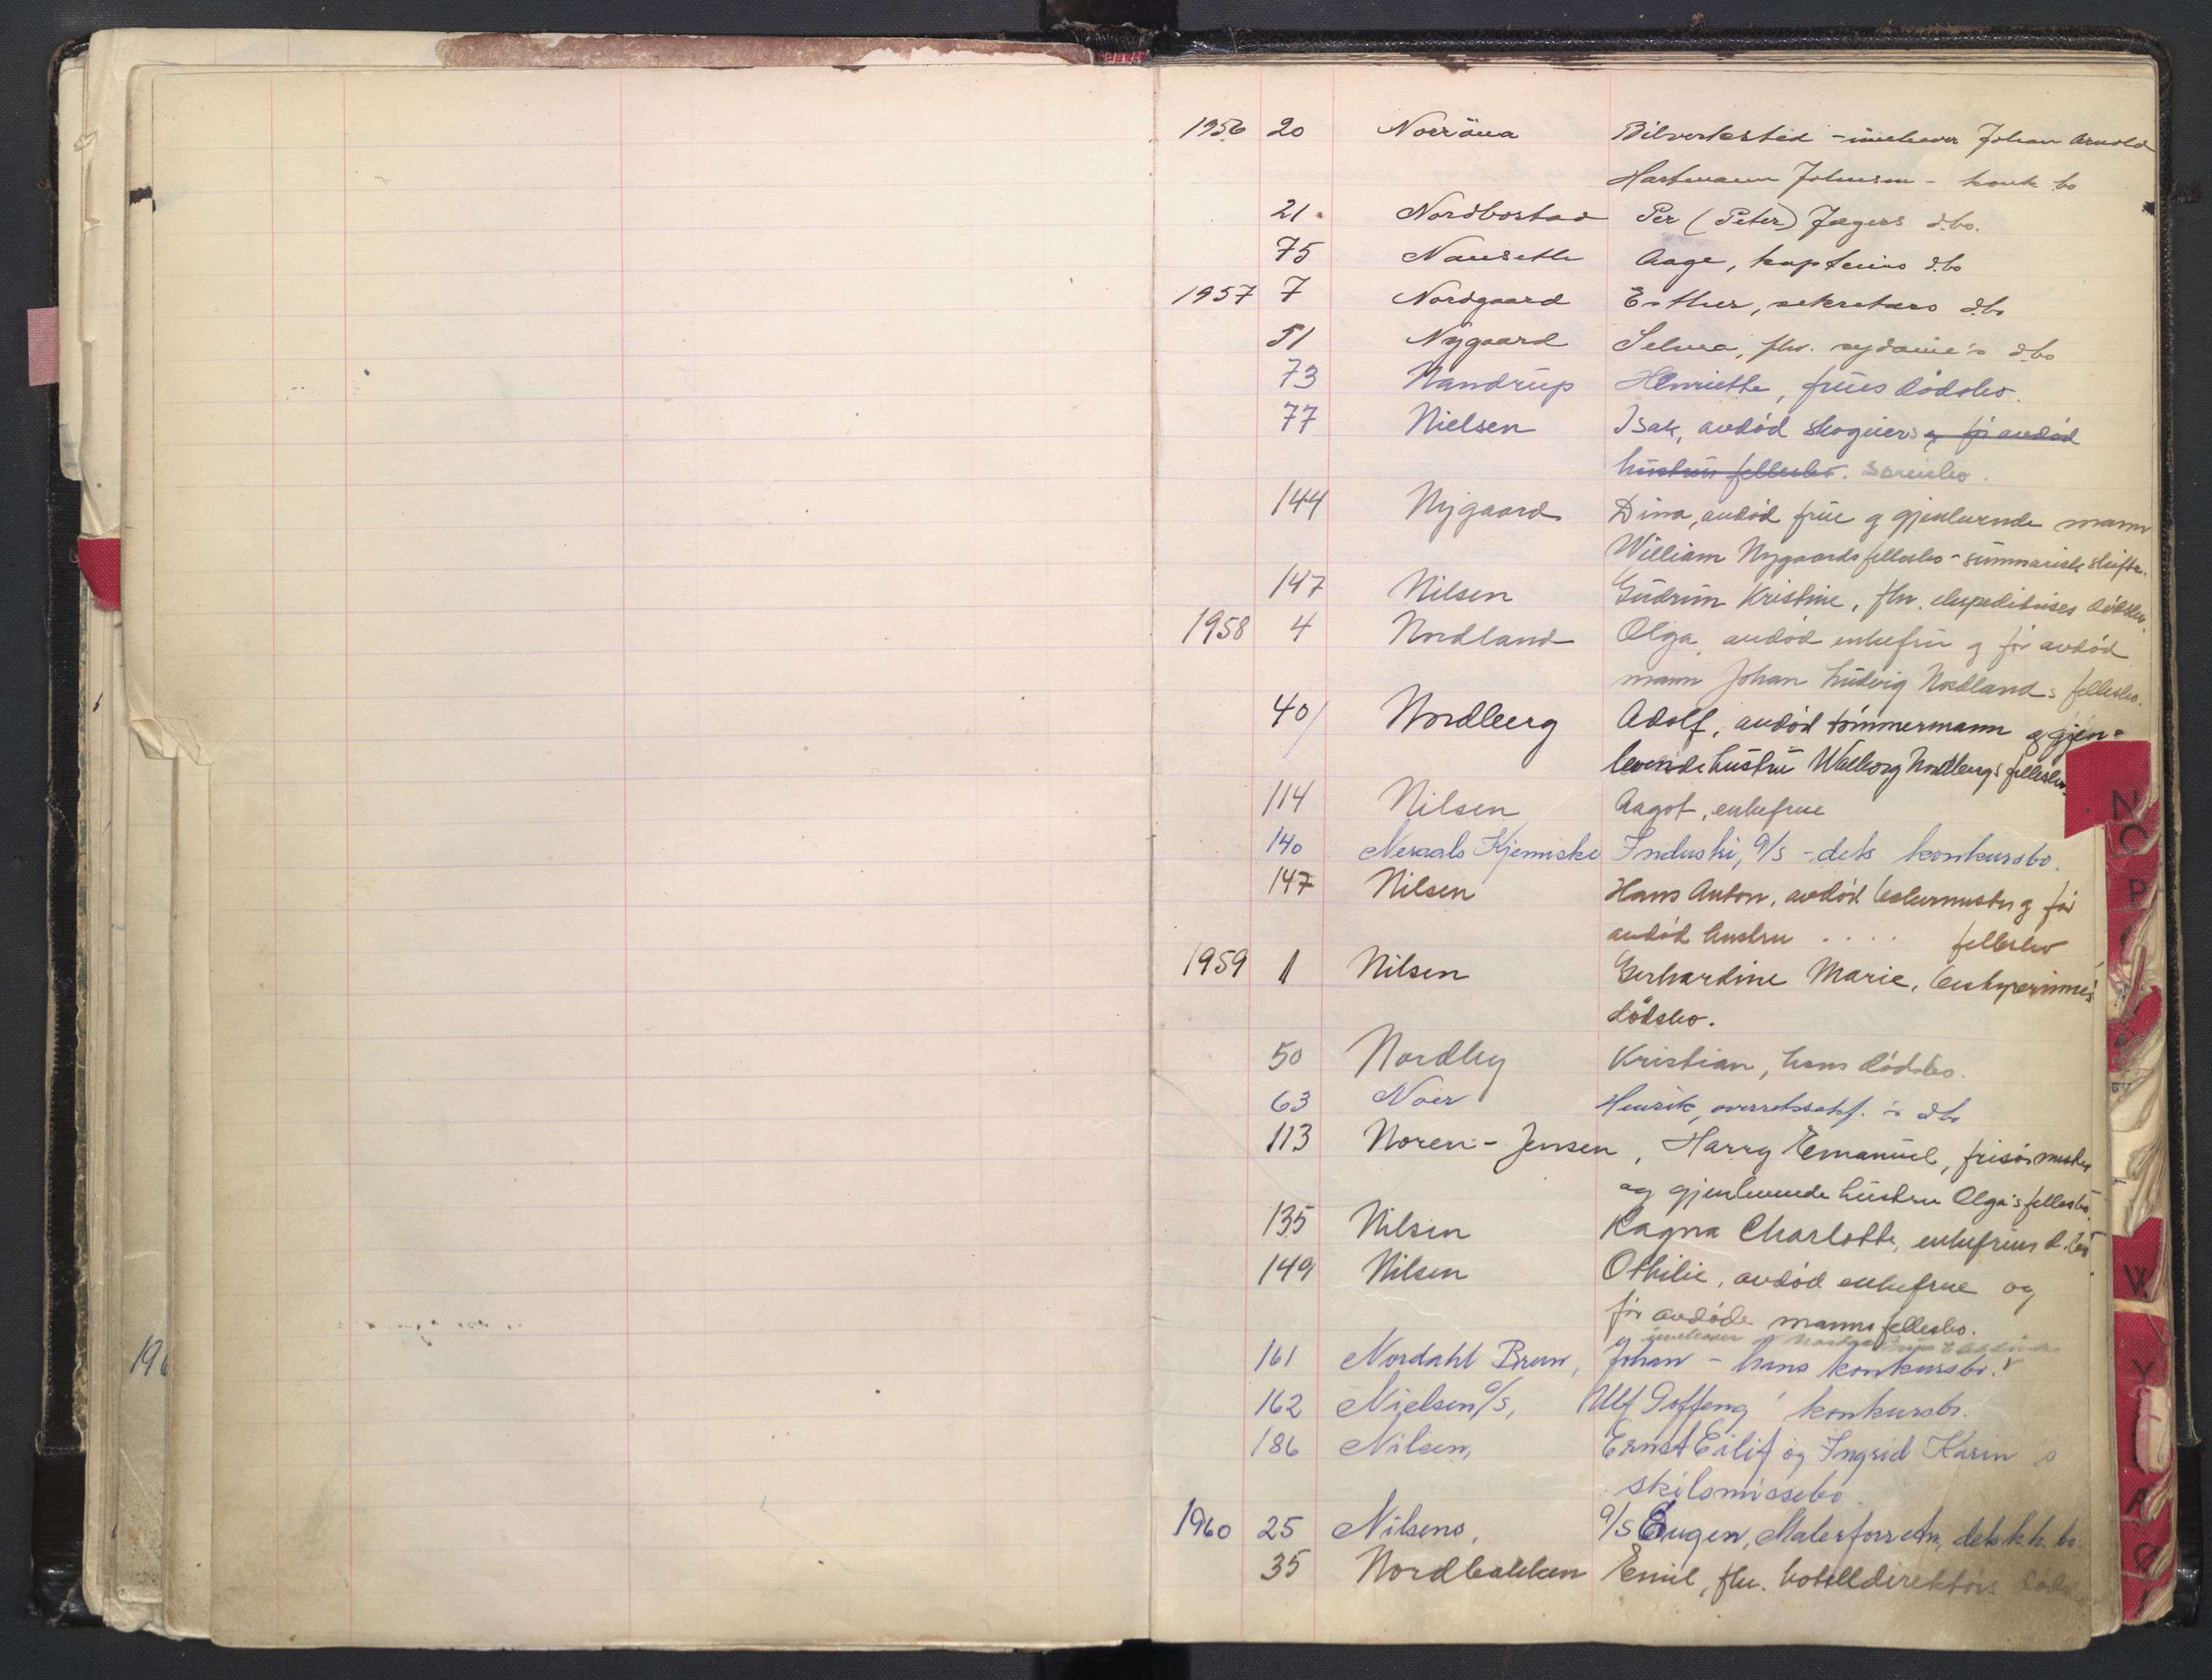 1956 20 Norröna Bilverksted - innehaver Johan Arnold
Hartmann Johnsen - konk.bo
21. Nordbostad Per (Peter) Jægers d.bo.
75 Nauseth Aage, kapteins d.bo
1957 7 Nordgaard Esther, sekretærs d.bo
51 Nygaard Selma, fhv. sydame's d.bo
73 Nandrup Henriette, frues dødsbo.
77 Nielsen Isak, avdød skogeiers og før avdød
hustrus fellesbo. særeiebo.
144 Nygaard Dina, avdød frue og gjenlevende mann
William Nygaards fellesbo - summarisk skifte.
147 Nilsen Gudrun Kristine, fhv. ekspeditrises dødsbo.
1958 4 Nordland Olga, avdød enkefru og før avdød
mann Johan Ludvig Nordlands fellesbo.
40 Nordberg Adolf, avdød tømmermann og gjen-
levende hustru Walborg Nordbergs fellesbo.
114 Nilsen Aagot, enkefrue
140 Neraals Kjemiske Industri, A/S - dets konkursbo.
147 Nilsen Hans Anton, avdød bakermester og før
avdød hustru .... fellesbo
1959 1 Nilsen Gerhardine Marie, bestyrerinnes
dødsbo.
50 Nordby Kristian, hans dødsbo.
63 Noer Henrik, overrettssakf.'s d.bo
113 Noren-Jensen, Harry Emanuel, frisørmester
og gjenlevende hustru Olga's fellesbo.
135 Nilsen Ragna Charlotte, enkefrues d.bo
149 Nilsen Othilie, avdød enkefrue og
før avdøde manns fellesbo.
og innehaver av
161 Nordahl Brun, Johan - hans konkursbo.
162 Nielsen A/S, Ulf Goffeng' konkursbo.
186 Nilsen, Ernst Eilif og Ingrid Karin's
skilsmissebo.
1960 25 Nilsens, A/S Eugen, Malerforretn, dets k.k. bo.
35 Nordbakken Emil, fhv. hotelldirektørs
196
N
O
P
W
Y
Æ
Ø